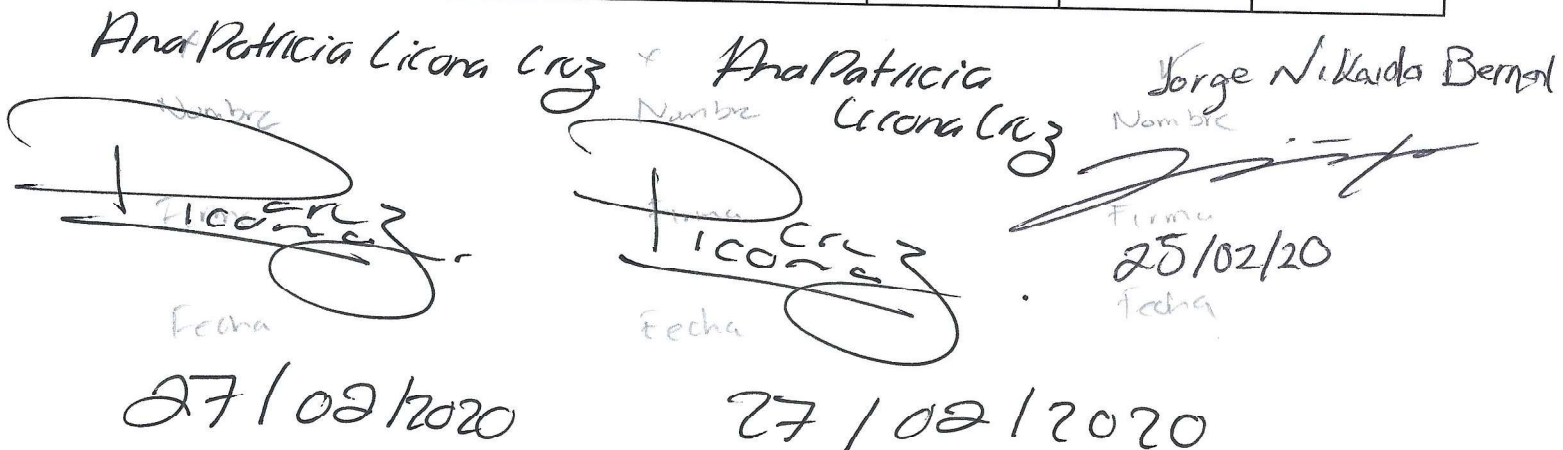 Ana Patricia Licona Cruz
Nombre
Licona Cruz
Firma
Fecha
27/02/2020
Ana Patricia
Licona Cruz
Nombre
Licona Cruz
Firma
Fecha
27/02/2020
Jorge Nikaido Bernal
Nombre
Firma
25/02/20
Fecha